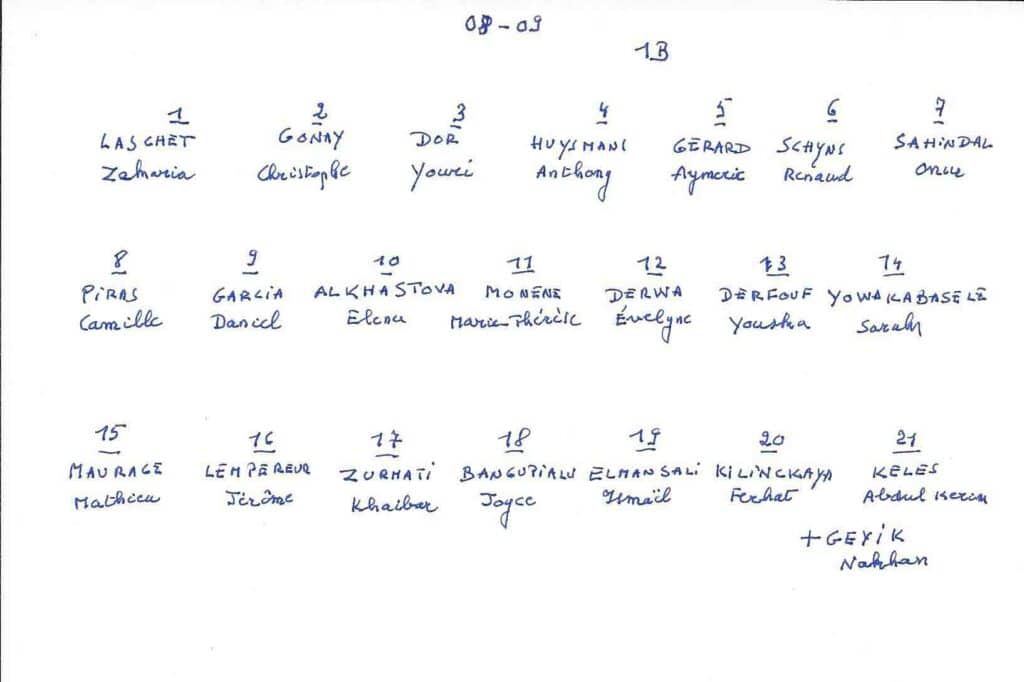 08-09
1B
1 2 3 4 5 6 7
LASCHET GONAY DOR HUYSMANS GÉRARD SCHYNS SAHINDAL
Zaharia Christophe Youri Anthony Aymeric Renaud Onur
8 9 10 11 12 13 14
PIRAS GARCIA ALKHASTOVA MONENE DERWA DERFOUF YOWAKABASELE
Camille Daniel Elena Marie-Thérèse Évelyne Yousra Sarah
15 16 17 18 19 20 21
MAURAGE LEMPEREUR ZURMATI ELMANSALI KILINCKAYA KELES
Mathieu Jérôme Khaibar Joyce Ismaïl Ferhat Abdul Kerim
+ GEYIK